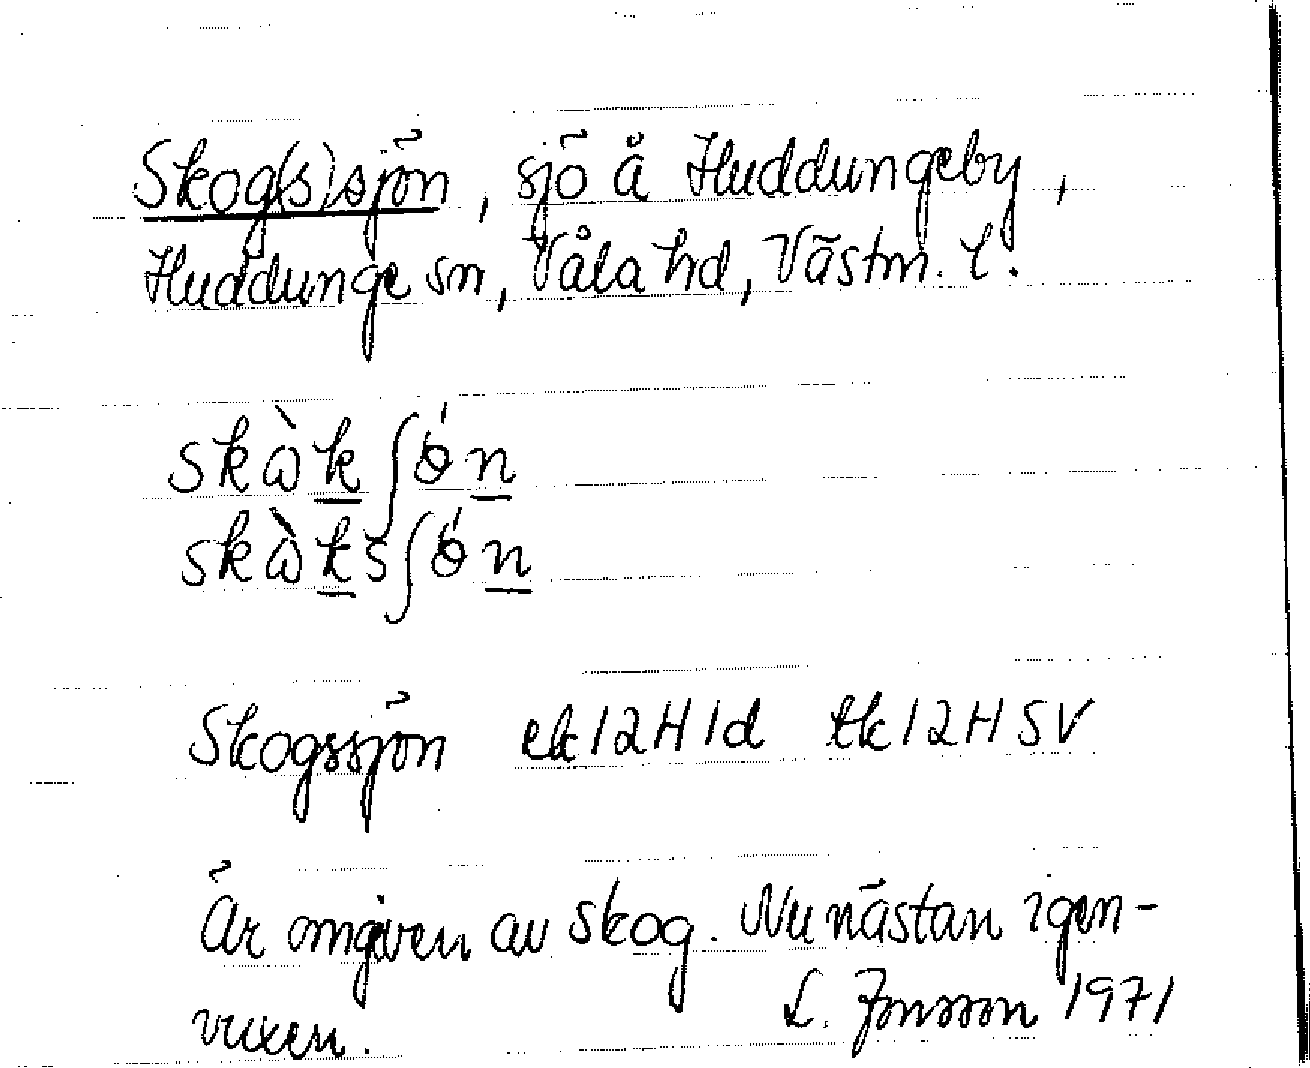 Skog(s)sjön, sjö å Huddungeby,
Huddunge sn, Våla hd, Västm. l.
skὼk̲ʃɵ́n̲
skὼk̲sʃɵ́n̲
Skogssjön ek 12H1d tk 12H SV
Är omgiven av skog. Nu nästan igen-
vuxen. L. Jonsson 1971